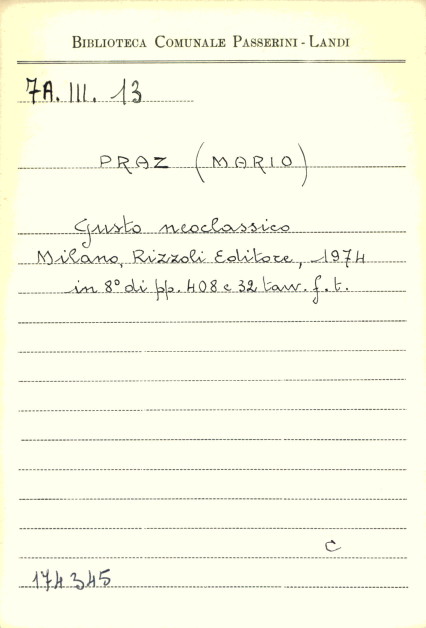 BIBLIOTECA COMUNALE PASSERINI - LANDI
7A. III. 13
PRAZ (MARIO)
Gusto neoclassico
Milano, Rizzoli Editore, 1974
in 8° di pp. 408 e 32 tavv. f. t.
C
174345